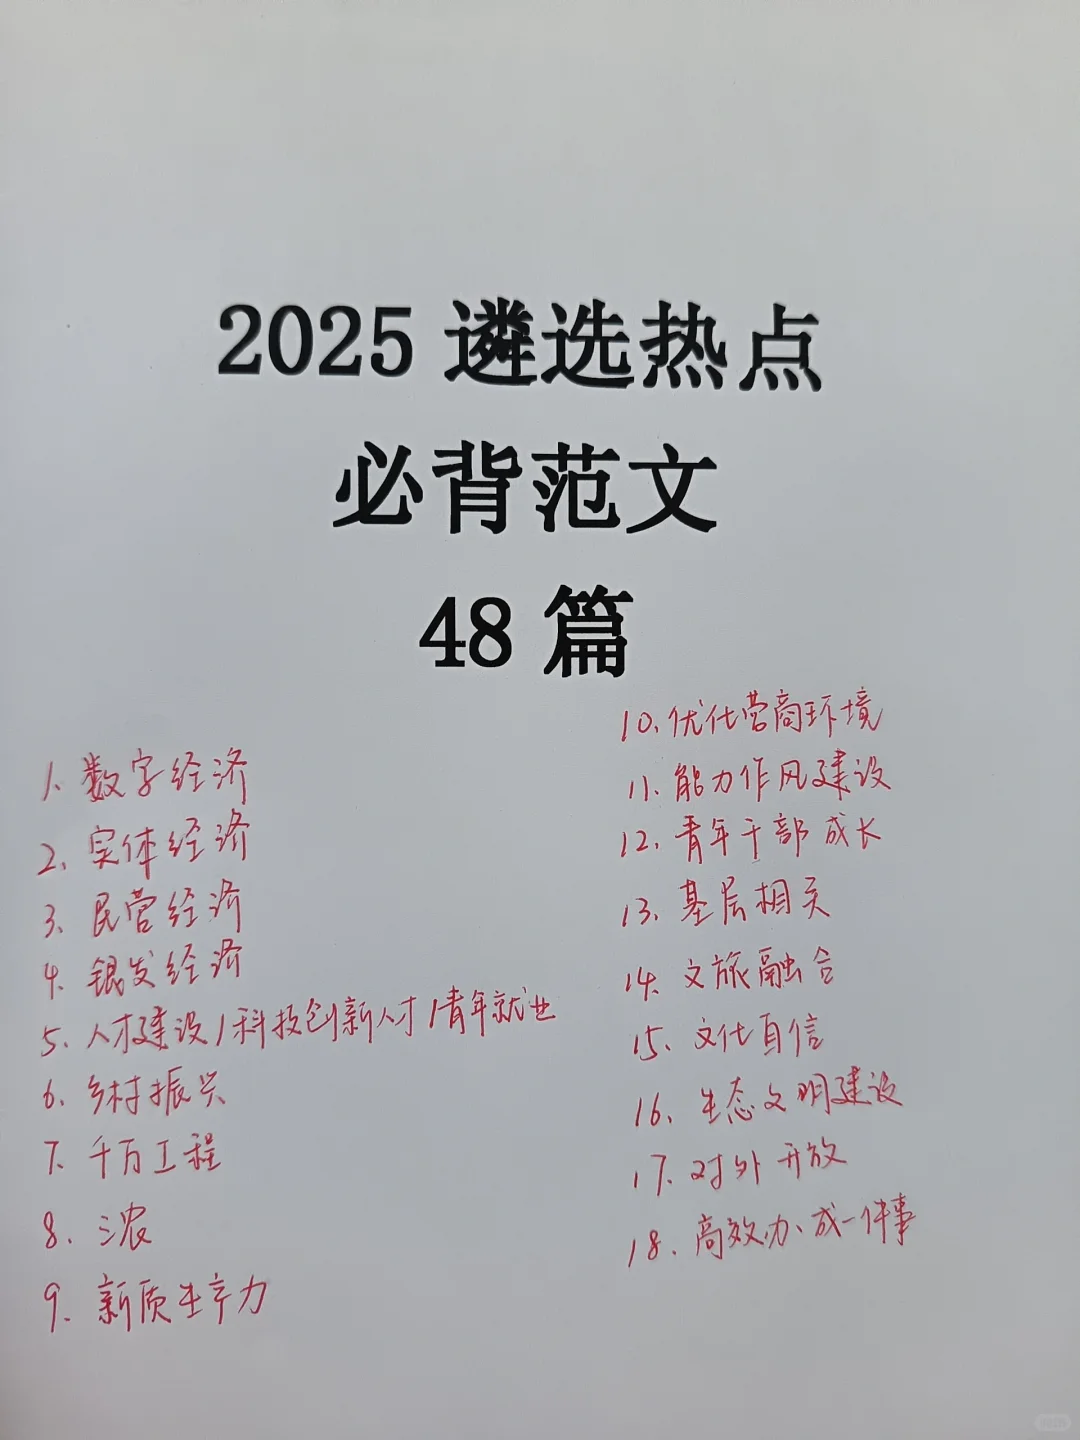 2025 遴选热点
必背范文
48 篇
1. 数字经济
2. 实体经济
3. 民营经济
4. 银发经济
5. 人才建设/科技创新人才/青年就业
6. 乡村振兴
7. 千万工程
8. 三农
9. 新质生产力
10. 优化营商环境
11. 能力作风建设
12. 青年干部成长
13. 基层相关
14. 文旅融合
15. 文化自信
16. 生态文明建设
17. 对外开放
18. 高效办成一件事